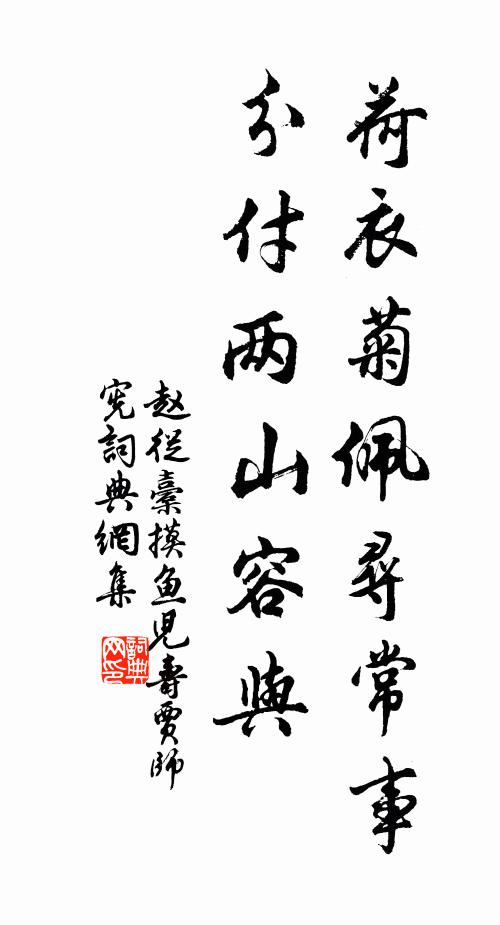 荷衣菊佩尋常事
分付两山容與
赵從橐摸魚児壽賈師
宪詞典網集
詞典
网印